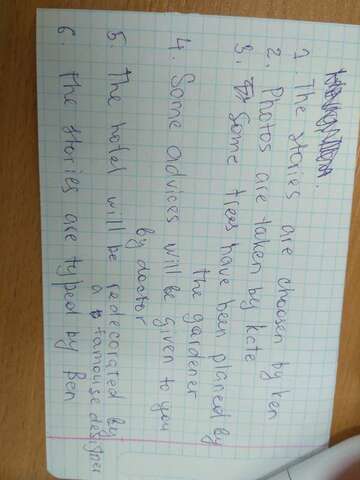 1. The stories are choosen by ken
2. Photos are taken by kate
3. Some trees have been planed by
the gardener
4. Some advices will be given to you
by doctor
5. The hotel will be redecorated by
a famouse designer
6. The stories are typed by Ben